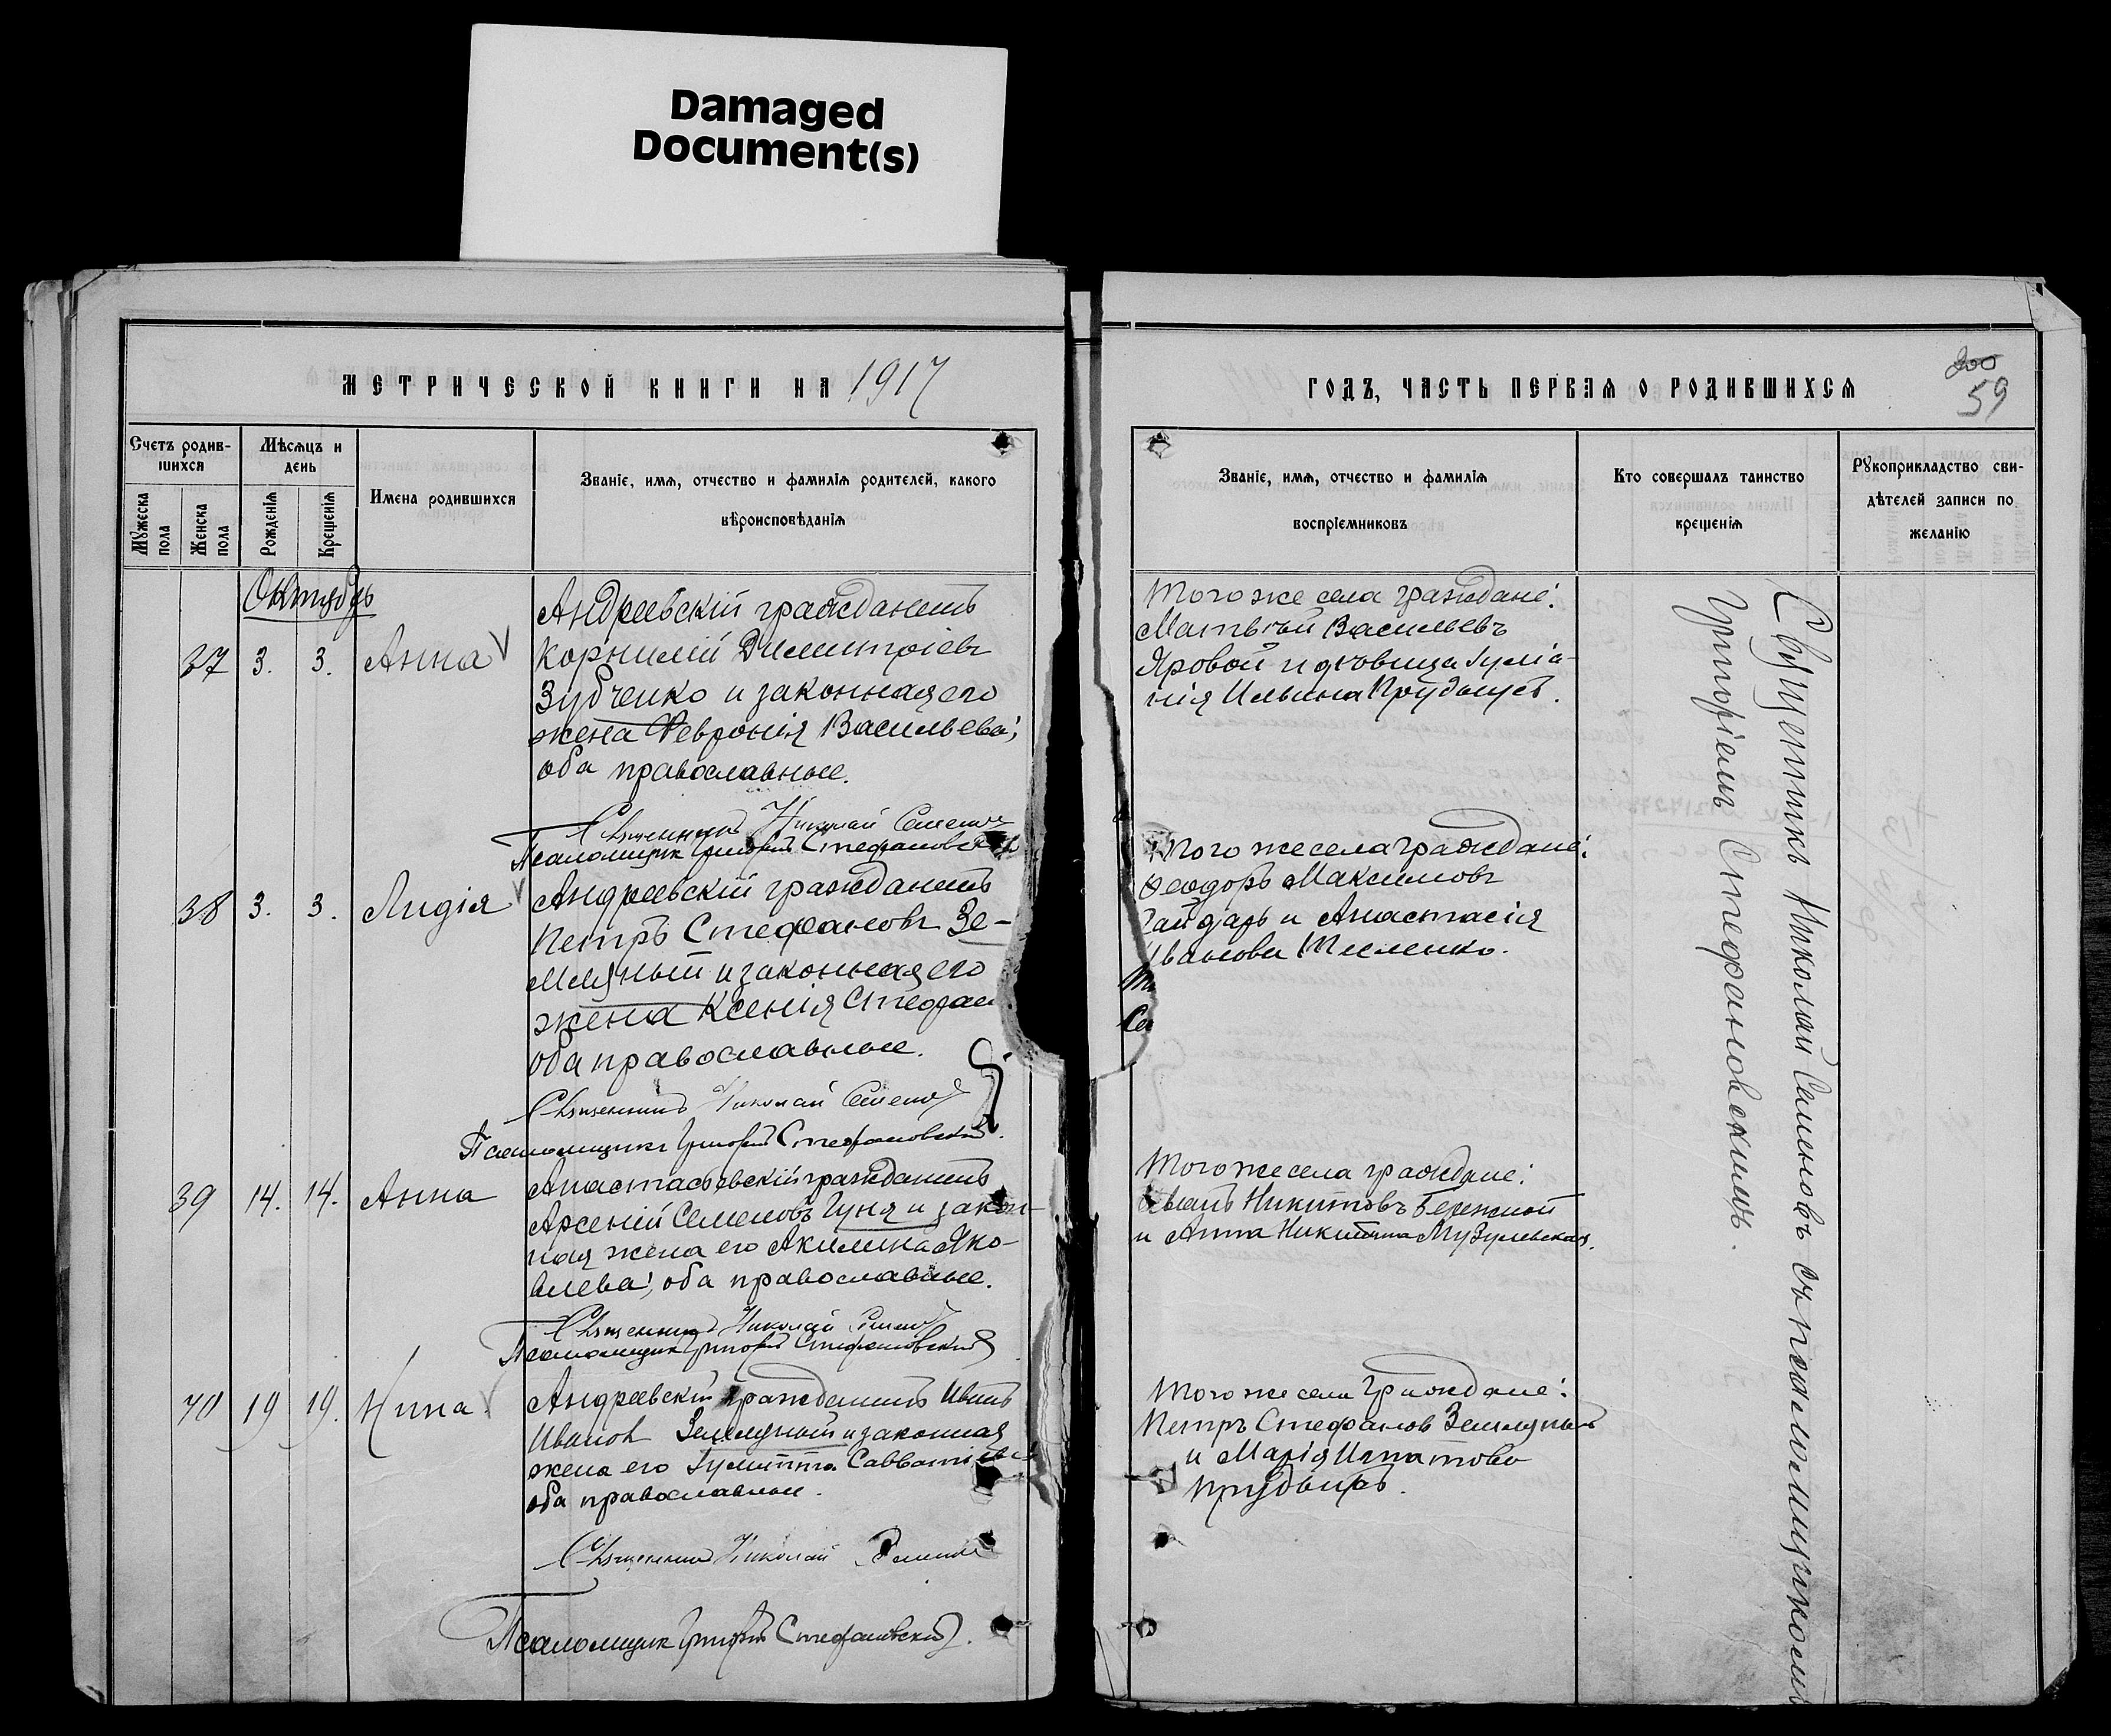 Damaged
Document(s)
МЕТРИЧЕСКОЙ КНИГИ НА 1917
Счетъ родив-
шихся
Мѣсяцъ и
день
Мужеска
пола
Женска
пола
Рожденія
Крещенія
Имена родившихся
Званіе, имя, отчество и фамилія родителей, какого
вѣроисповѣданія
Октябрь
37 3. 3. Анна
Андреевскій гражданинъ
Корнилій Димитріевъ
Зубченко и законная его
жена Февронія Васильева;
оба православные.
Священникъ Николай Семеновъ
Псаломщикъ Григорій Стефановскій
38 3. 3. Лидія
Андреевскій гражданинъ
Петръ Стефановъ Зе-
мляный и законная его
жена Ксенія Стефан
оба православные.
Священникъ Николай Семеновъ
Псаломщикъ Григорій Стефановскій.
39 14. 14. Анна
Анастасьевскій гражданинъ
Арсеній Семеновъ Гуня и закон-
ная жена его Акилина Яко-
влева; оба православные.
Священникъ Николай Семеновъ
Псаломщикъ Григорій Стефановскій
40 19 19. Нина
Андреевскій гражданинъ Иванъ
Ивановъ Земляный и законная
жена его Іулитта Савватіева
оба православные.
Священникъ Николай Семеновъ
Псаломщикъ Григорій Стефановскій.
200
59
ГОДЪ, ЧАСТЬ ПЕРВАЯ О РОДИВШИХСЯ
Званіе, имя, отчество и фамилія
воспріемниковъ
Кто совершалъ таинство
крещенія
Рукоприкладство сви-
дѣтелей записи по
желанію
Того же села граждане:
Матвѣй Васильевъ
Яровой и дѣвица Іуліа-
нія Ильина Прудыусъ.
Того же села граждане:
Ѳеодоръ Максимовъ
Гайдарь и Анастасія
Иванова Тесленко.
Того же села граждане:
Иванъ Никитовъ Бережной
и Анна Никитина Музулевская.
Того же села граждане:
Петръ Стефановъ Земляный
и Марія Игнатова
Прудыусъ.
Священникъ Николай Семеновъ съ псаломщикомъ
Григоріемъ Стефановскимъ.